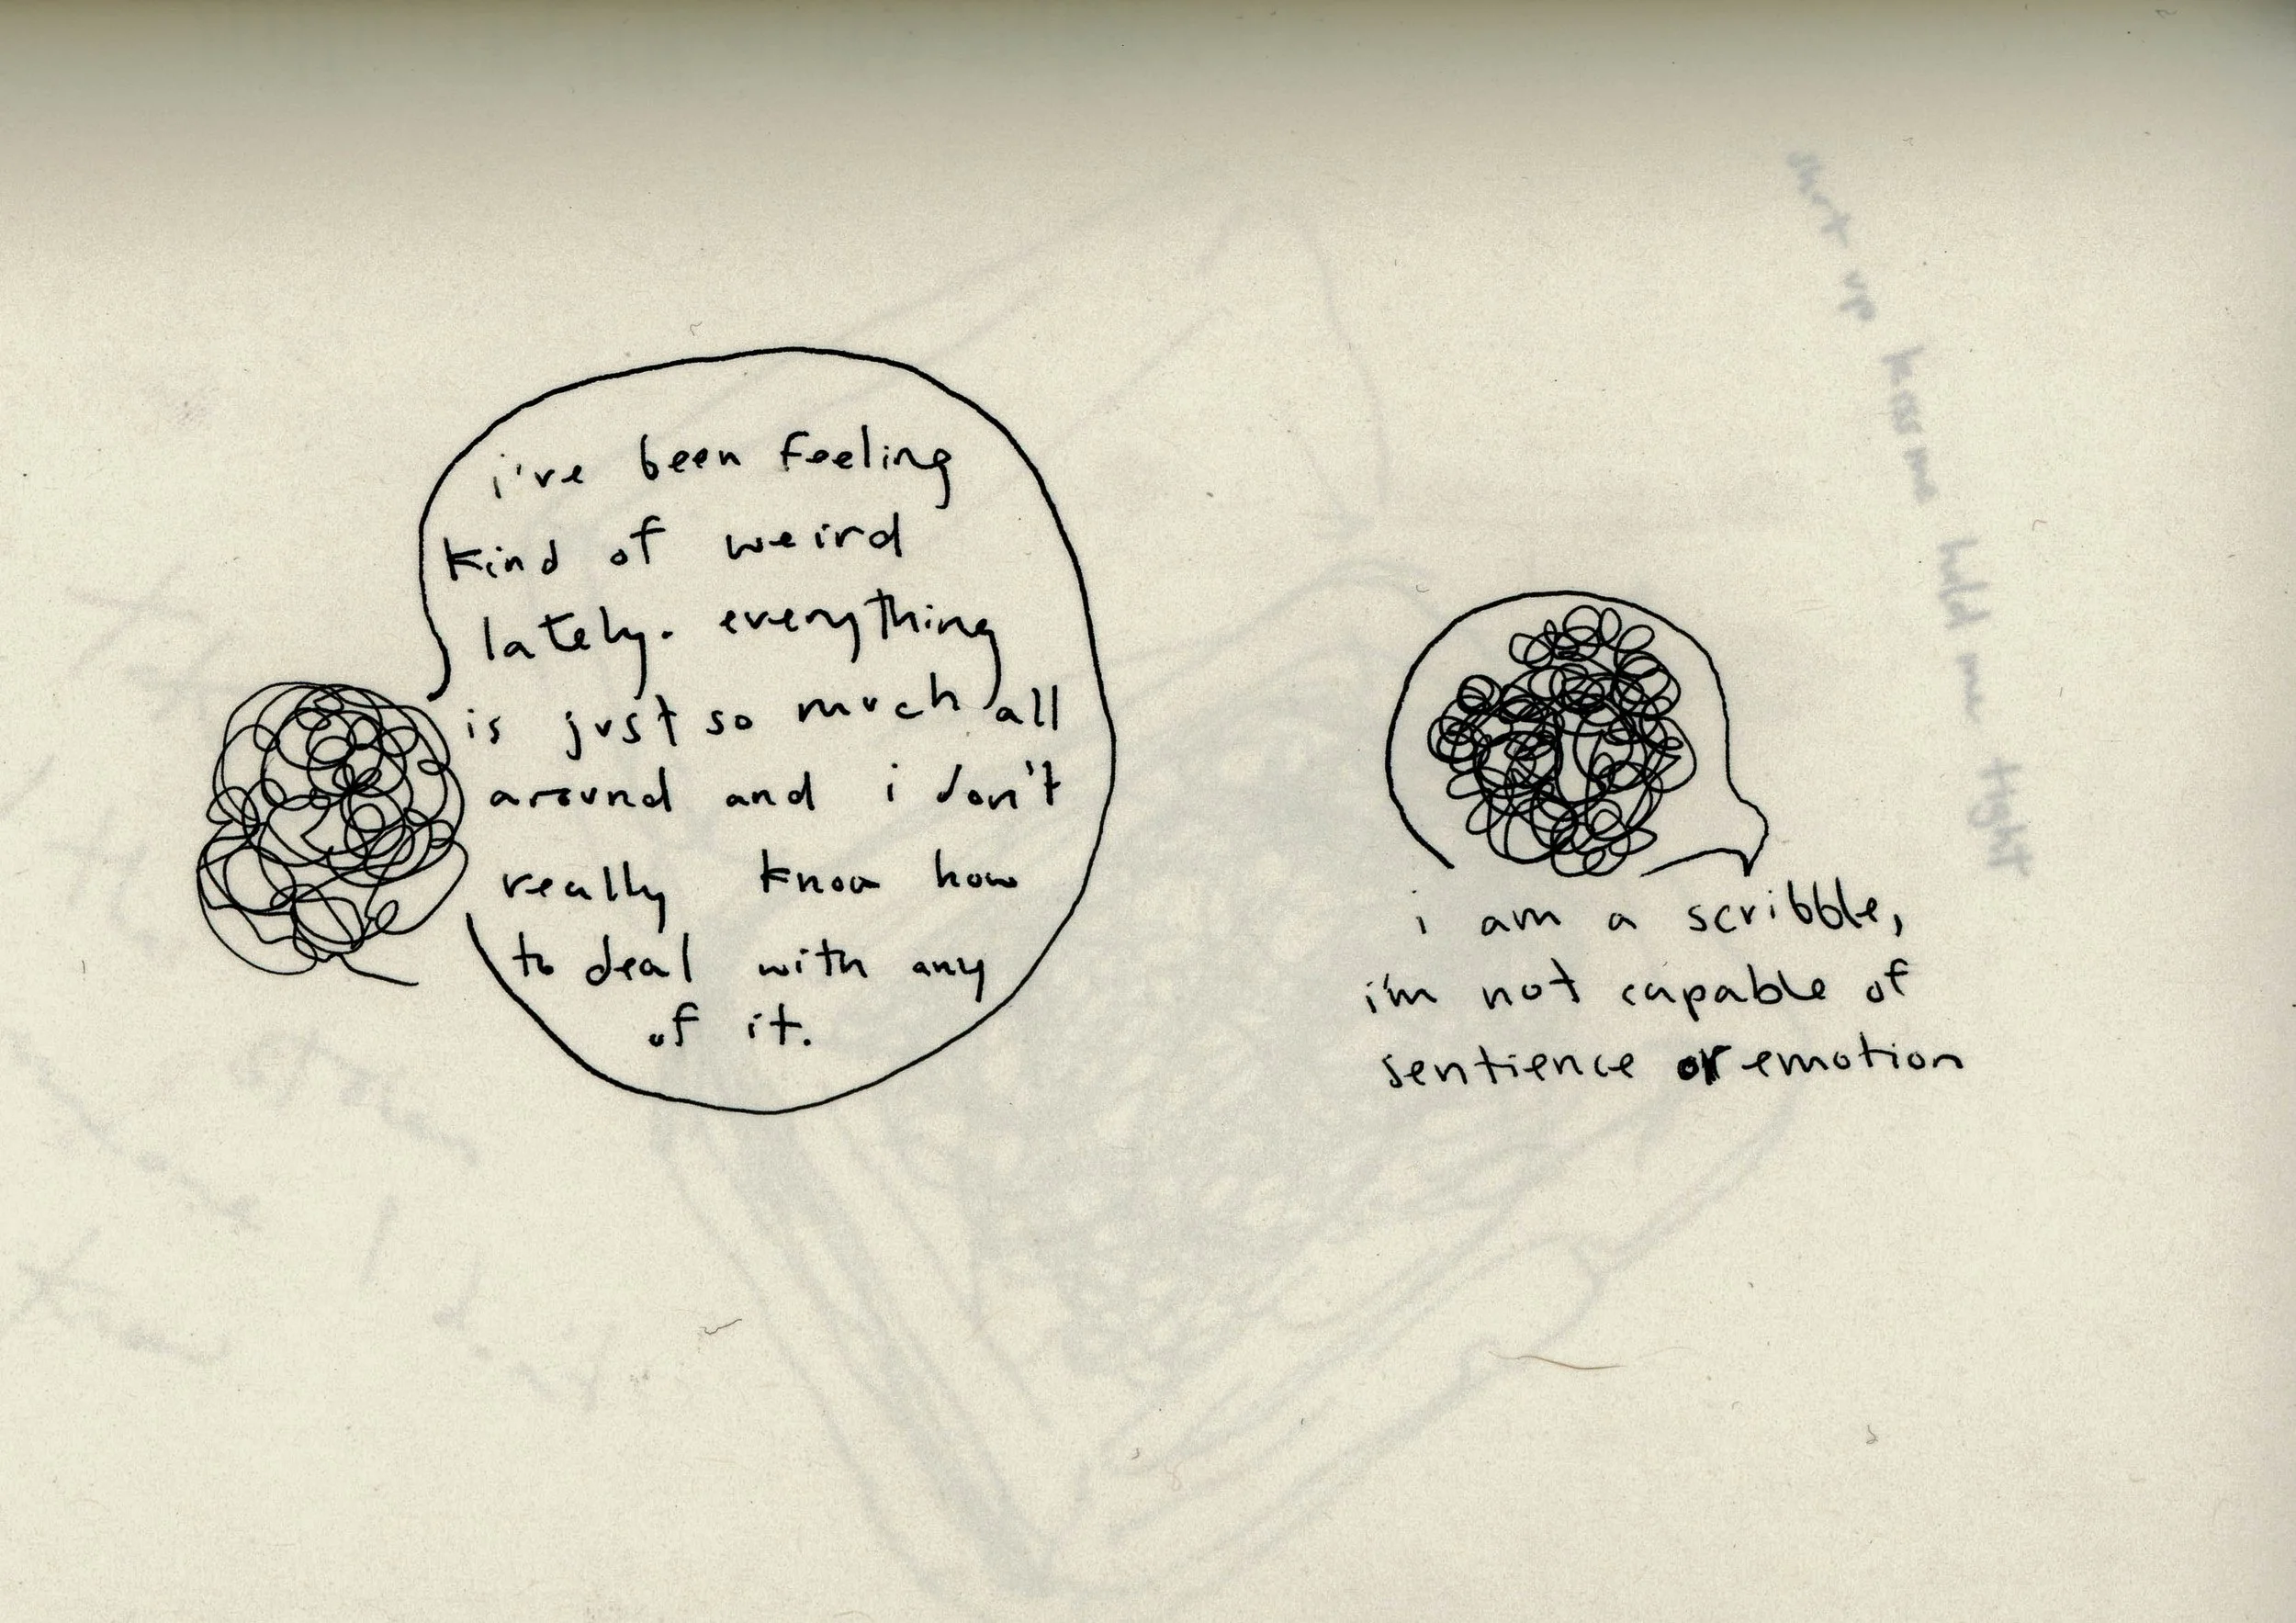 i've been feeling
kind of weird
lately. everything
is just so much all
around and i don't
really know how
to deal with any
of it.
i am a scribble,
i'm not capable of
sentience or emotion